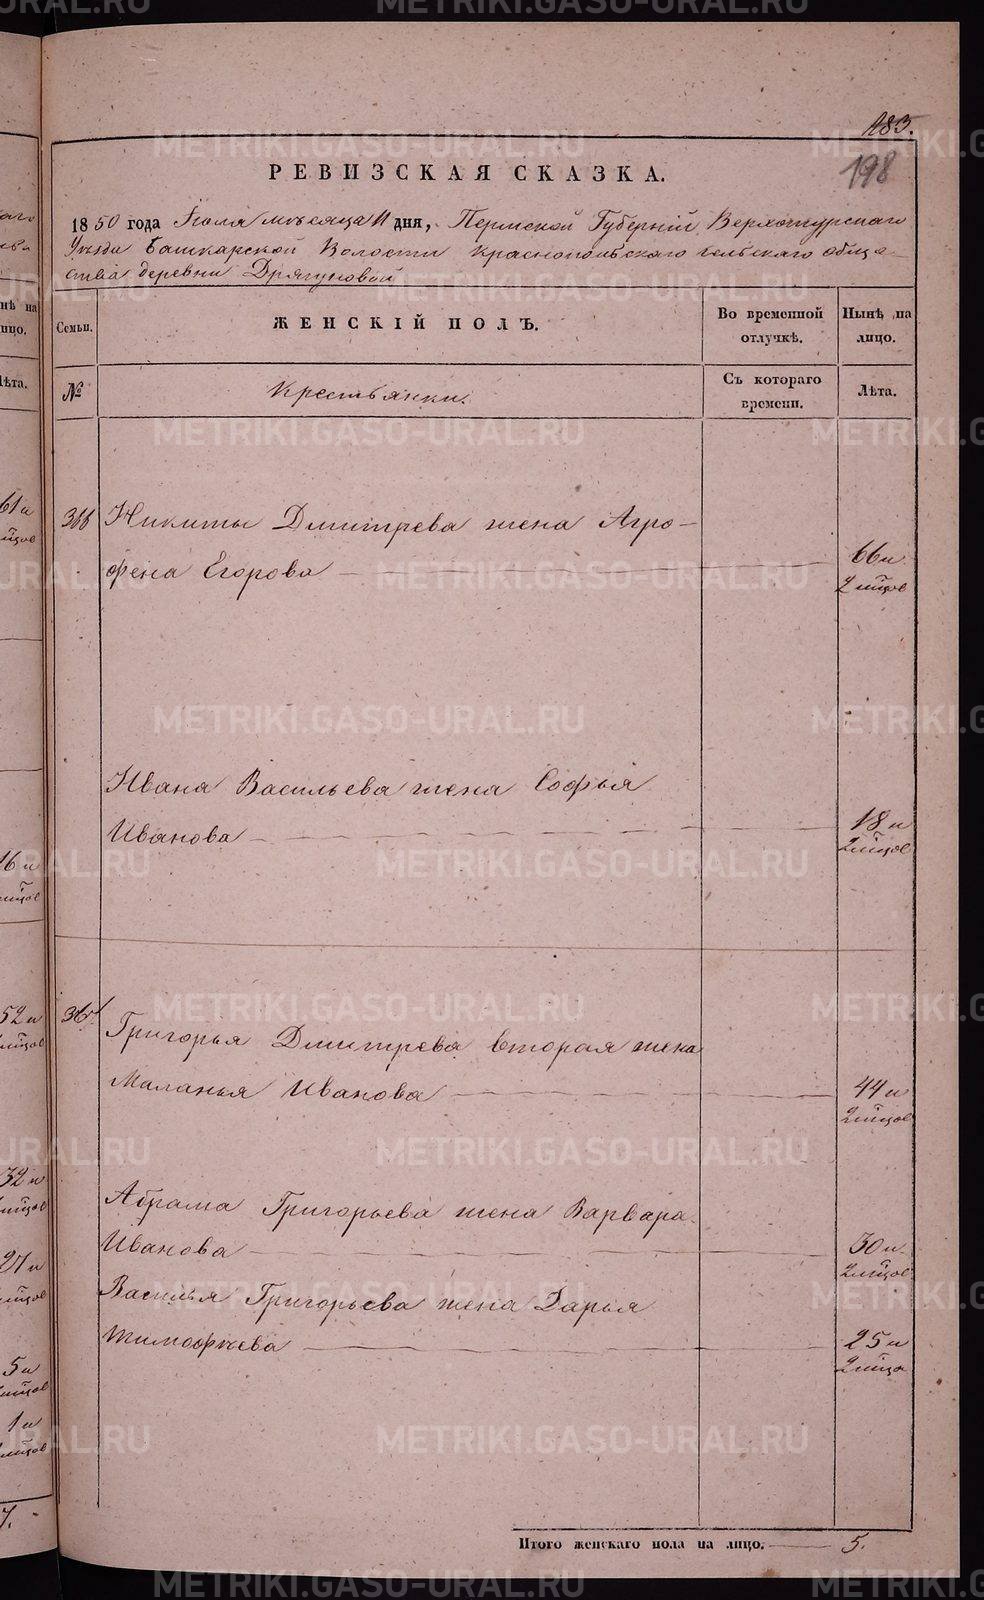 183.
198
РЕВИЗСКАЯ СКАЗКА.
1850 года Іюля мѣсяца 11 дня, Пермской Губерніи, Верхотурскаго
Уѣзда Башкарской Волости Краснопольскаго сельскаго обще-
ства деревни Дрягуновой
Семьи. ЖЕНСКІЙ ПОЛЪ. Во временной отлучкѣ. Нынѣ на лицо.
№ Крестьянки. Съ котораго времени. Лѣта.
366 Никиты Дмитрева жена Агро-
фена Егорова — 66 и
2 мѣцов
Ивана Васильева жена Софья
Иванова — 18 и
2 мѣцов
367 Григорья Дмитрева вторая жена
Маланья Иванова — 44 и
2 мѣцов
Абрама Григорьева жена Варвара
Иванова — 30 и
2 мѣцов
Василья Григорьева жена Дарья
Тимофѣева — 25 и
2 мѣцо
Итого женскаго пола на лицо. — 5.
61 и
мѣцов
16 и
мѣцов
52 и
мѣцов
32 и
мѣцов
27 и
мѣцов
5 и
мѣцов
1 и
мѣцов
7.
METRIKI.GASO-URAL.RU